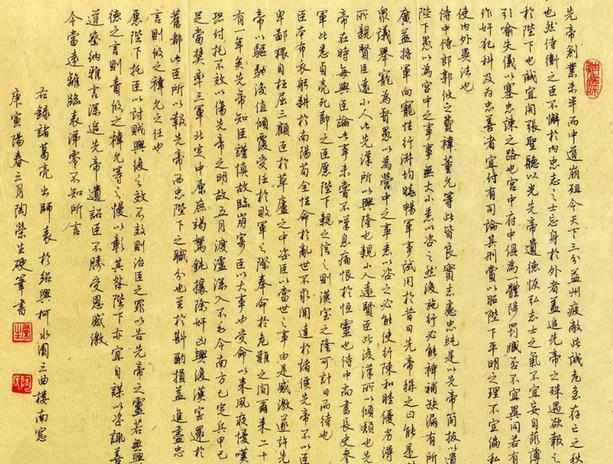 先帝創業未半而中道崩殂今天下三分益州疲敝此誠危急存亡之秋
也然侍衛之臣不懈於内忠志之士忘身於外者蓋追先帝之殊遇欲報之
於陛下也誠宜開張聖聽以光先帝遺德恢弘志士之氣不宜妄自菲薄
引喻失儀以塞忠諫之路也宮中府中俱為一體陟罰臧否不宜異同若有
作奸犯科及為忠善者宜付有司論其刑賞以昭陛下平明之理不宜偏私
使内外異法也
侍中侍郎郭攸之費禕董允等此皆良實志慮忠純是以先帝簡拔以遺
陛下愚以為宮中之事事無大小悉以咨之然後施行必能裨補缺漏有所
廣益將軍向寵性行淑均曉暢軍事試用於昔日先帝稱之曰能是以
衆議舉寵為督愚以為營中之事悉以咨之必能使行陣和睦優劣得
所親賢臣遠小人此先漢所以興隆也親小人遠賢臣此後漢所以傾頹也先
帝在時每與臣論此事未嘗不嘆息痛恨於桓靈也侍中尚書長史參
軍此悉貞亮死節之臣願陛下親之信之則漢室之隆可計日而待也
臣本布衣躬耕於南陽苟全性命於亂世不求聞達於諸侯先帝不以臣
卑鄙猥自枉屈三顧臣於草廬之中咨臣以當世之事由是感激遂許先
帝以驅馳後值傾覆受任於敗軍之際奉命於危難之間爾來二十
有一年矣先帝知臣謹慎故臨崩寄臣以大事也受命以來夙夜憂嘆
恐付托不效以傷先帝之明故五月渡瀘深入不毛今南方已定兵甲已
足當獎率三軍北定中原庶竭駑鈍攘除奸凶興復漢室還於
舊都此臣所以報先帝而忠陛下之職分也至於斟酌損益進盡忠
言則攸之禕允之任也
願陛下托臣以討賊興復之效不效則治臣之罪以告先帝之靈若無興
德之言則責攸之禕允等之慢以彰其咎陛下亦宜自謀以咨諏善
道察納雅言深追先帝遺詔臣不勝受恩感激
今當遠離臨表涕零不知所言
右錄諸葛亮出師表於紹興柯水園三曲樓南窗
庚寅陽春三月陶榮生硬筆書